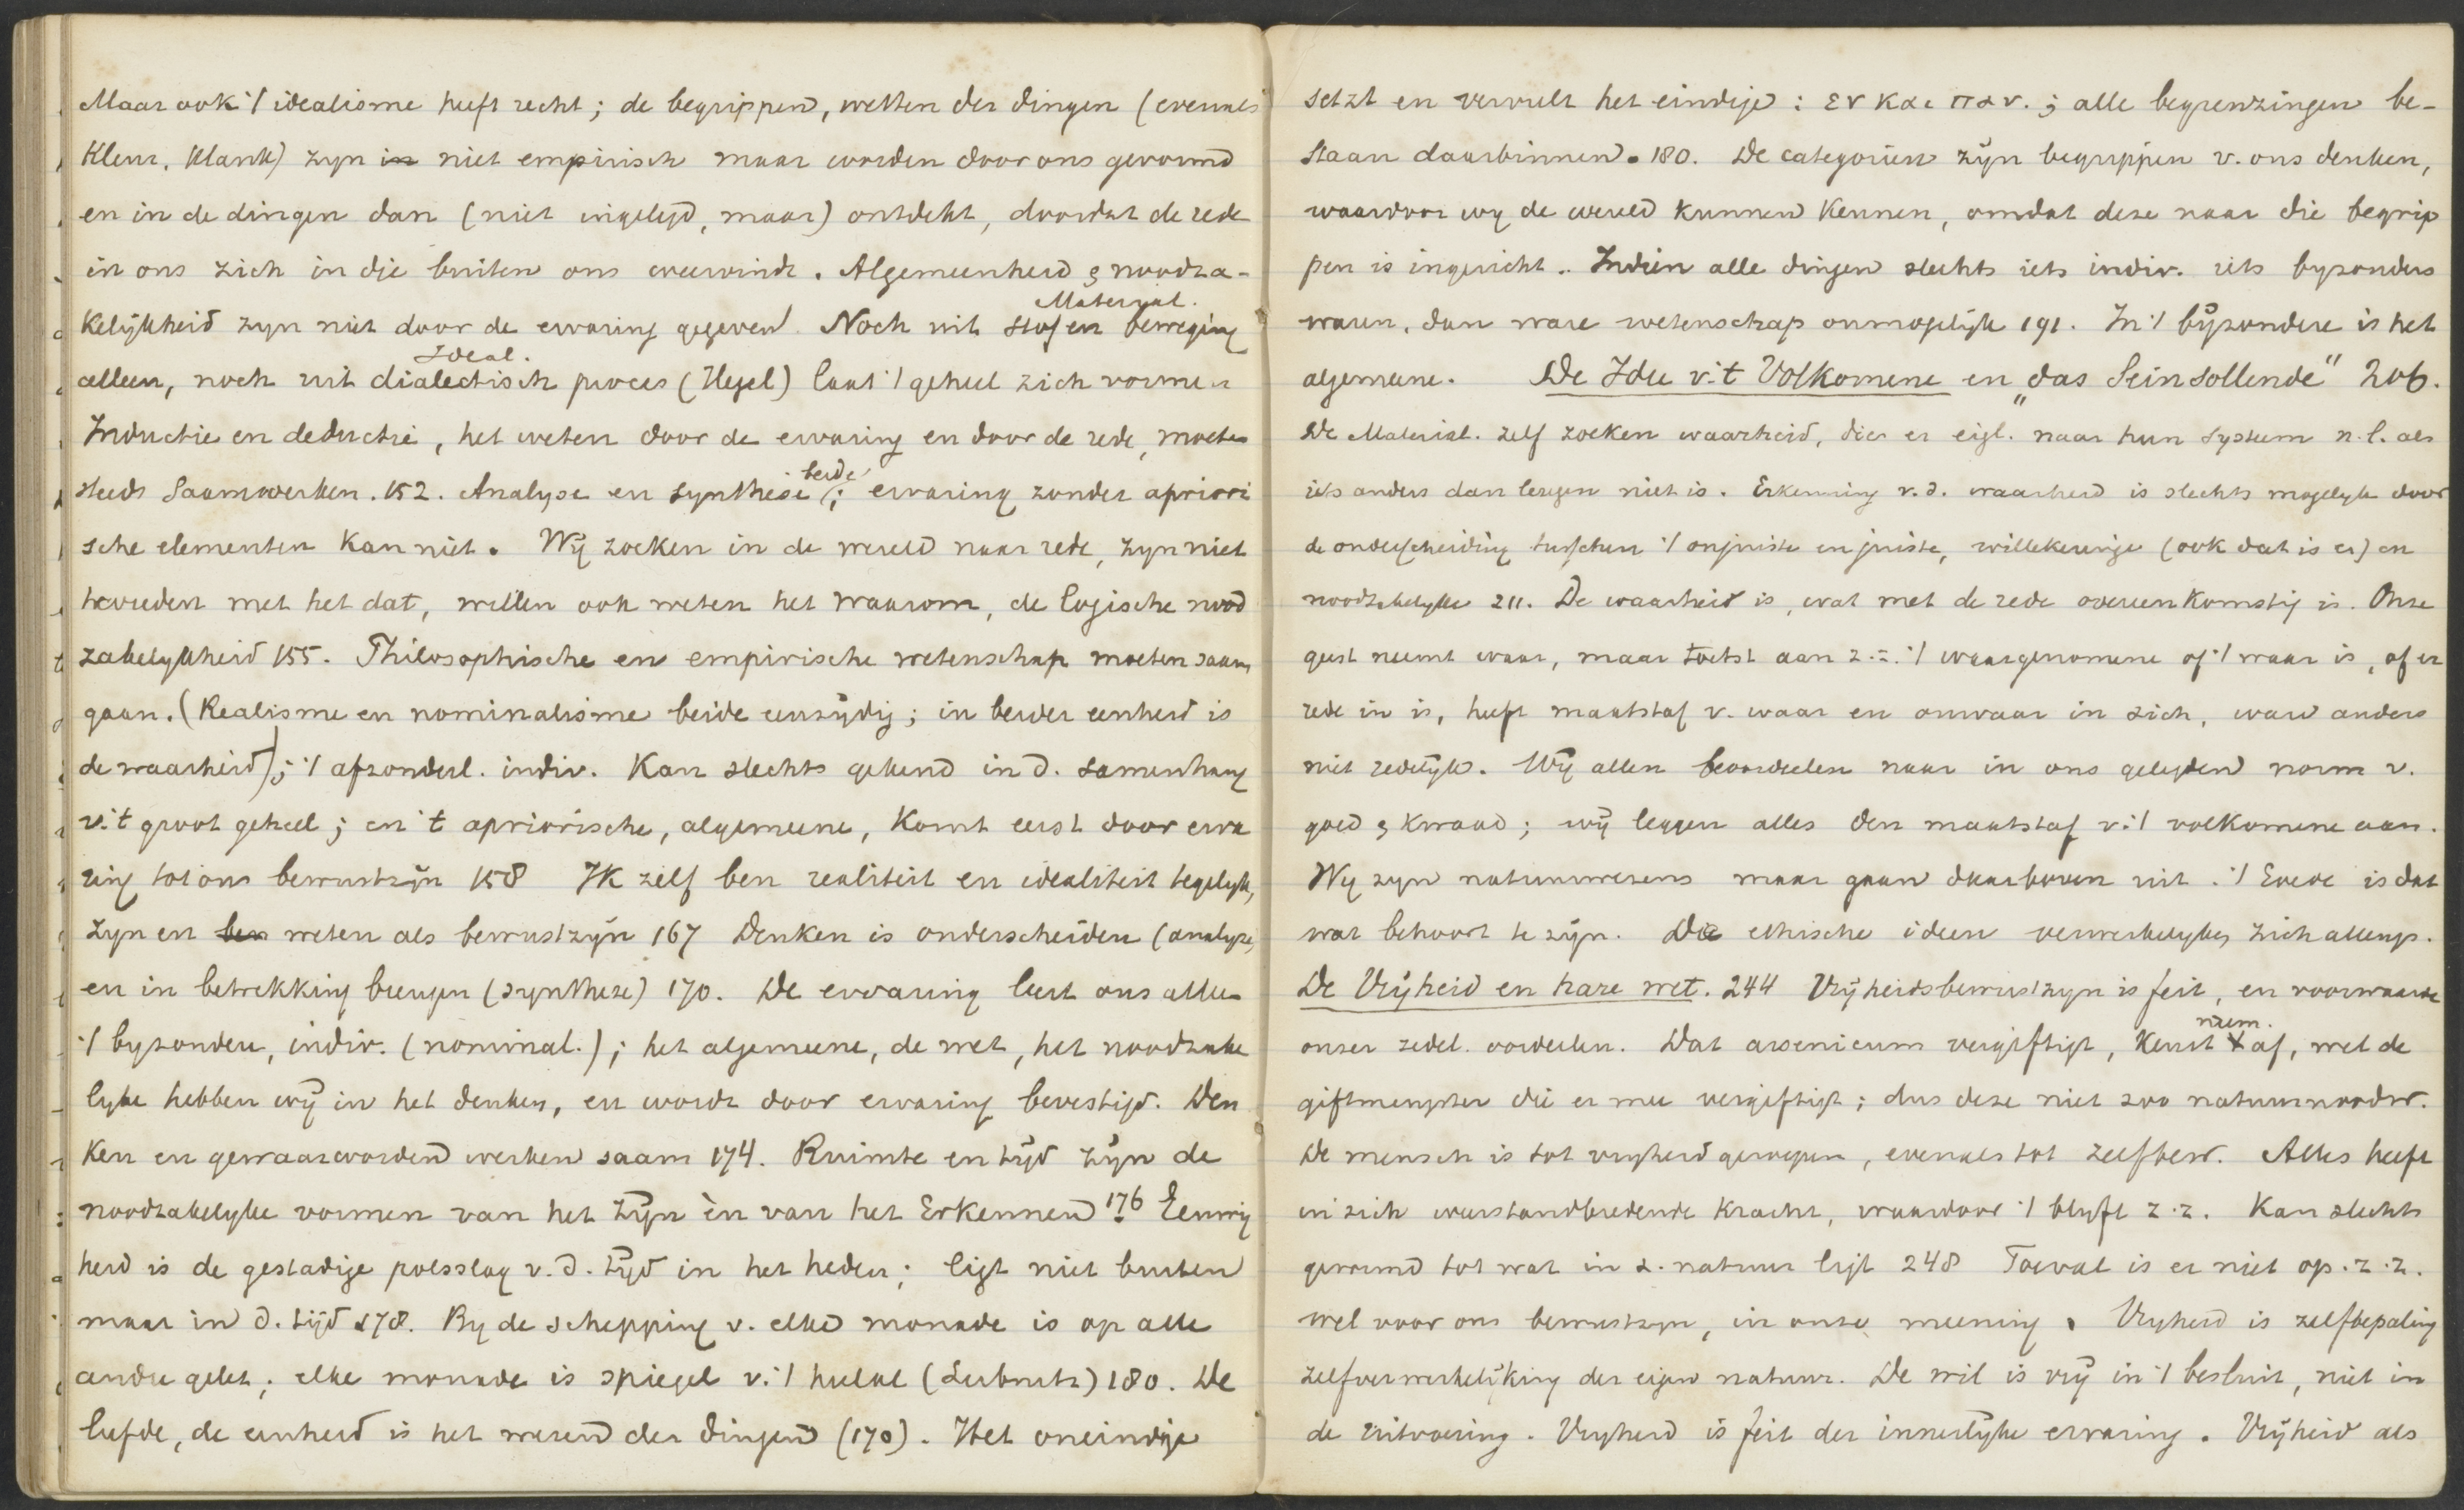 Maar ook 't idealisme heeft recht; de begrippen, wetten der dingen (evenals
kleur, klank) zyn in niet empirisch maar worden door ons gevormd
en in de dingen dan (niet ingelegd, maar) ontdekt, doordat de rede
in ons zich in die buiten ons weervindt. Algemeenheid & noodza-
Material.
kelijkheid zyn niet door de ervaring gegeven. Noch uit stof en beweging
Ideal.
alleen, noch uit dialectisch proces (Hegel) laat 't geheel zich vormen
Inductie en deductie, het weten door de ervaring en door de rede, moeten
beide
steeds saamwerken. 152. Analyse en synthese ; ervaring zonder apriori
sche elementen kan niet. Wij zoeken in de wereld naar rede, zyn niet
tevreden met het dat, willen ook weten het waarom, de logische nood
zakelykheid 155. Philosophische en empirische wetenschap moeten saam
gaan. (Realisme en nominalisme beide eenzijdig; in beider eenheid is
de waarheid); 't afzonderl. indiv. kan slechts gekend in d. samenhang
v. 't groot geheel; en 't apriorische, algemeene, komt eerst door erva
ring tot ons bewustzijn 158 Ik zelf ben realiteit en idealiteit tegelyk,
zyn en ben weten als bewustzijn 167 Denken is onderscheiden (analyse)
en in betrekking brengen (synthese) 170. De ervaring leert ons alleen
't byzondere, indiv. (nominal.); het algemeene, de wet, het noodzake
lyke hebben wij in het denken, en wordt door ervaring bevestigd. Den
ken en gewaarworden werken saam 174. Ruimte en tijd zijn de
noodzakelyke vormen van het zijn èn van het Erkennen 176 Eeuwig
heid is de gestadige polsslag v. d. tijd in het heden; ligt niet buiten
maar in d. tijd 178. By de schepping v. elke monade is op alle
andre gelet; elke monade is spiegel v. 't heelal (Leibnitz) 180. De
liefde, de eenheid is het wezen der dingen (170). Het oneindige
setzt en vervult het eindige: εν και παν.; alle begrenzingen be-
staan daarbinnen. 180. De categoriën zijn begrippen v. ons denken,
waardoor wy de wereld kunnen kennen, omdat deze naar die begrip
pen is ingericht.. Indien alle dingen slechts iets indiv. iets byzonders
waren, dan ware wetenschap onmogelijk 191. In 't bijzondere is het
algemeene. De Idee v. 't Volkomene en „das Seinsollende" 206.
De Material. zelf zoeken waarheid, die er eigl. naar hun systeem n.l. als
iets anders dan leugen niet is. Erkenning v. d. waarheid is slechts mogelyk door
de onderscheiding tusschen 't onjuiste en juiste, willekeurige (ook dat is er) en
noodzakelyke 211. De waarheid is, wat met de rede overeenkomstig is. Onze
geest neemt waar, maar toetst aan z.z. 't waargenomene of 't waar is, of er
rede in is, heeft maatstaf v. waar en onwaar in zich, ware anders
niet redelijk. Wij allen beoordeelen naar in ons gelegden norm v.
goed & kwaad; wij leggen alles den maatstaf v. 't volkomene aan.
Wy zyn natuurwezens maar gaan daarboven uit. 't Goede is dat
wat behoort te zijn. Die ethische ideën verwerkelyken zich allengs.
De Vrijheid en hare wet. 244 Vrijheidsbewustzyn is feit, en voorwaarde
niem.
onzer zedel. oordeelen. Dat arsenicum vergiftigt, keurt af, wel de
giftmengster die er mee vergiftigt; dus deze niet zoo natuurnoodw.
De mensch is tot vryheid geroepen, evenals tot zelfbew. Alles heeft
in zich weerstandbiedende kracht, waardoor 't blyft z.z. Kan slechts
gevormd tot wat in z. natuur ligt 248 Toeval is er niet op. z.z.
wel voor ons bewustzyn, in onze meening. Vryheid is zelfbepaling
zelfverwerkelijking der eigen natuur. De wil is vrij in 't besluit, niet in
de uitvoering. Vryheid is feit der innerlyke ervaring. Vrijheid als